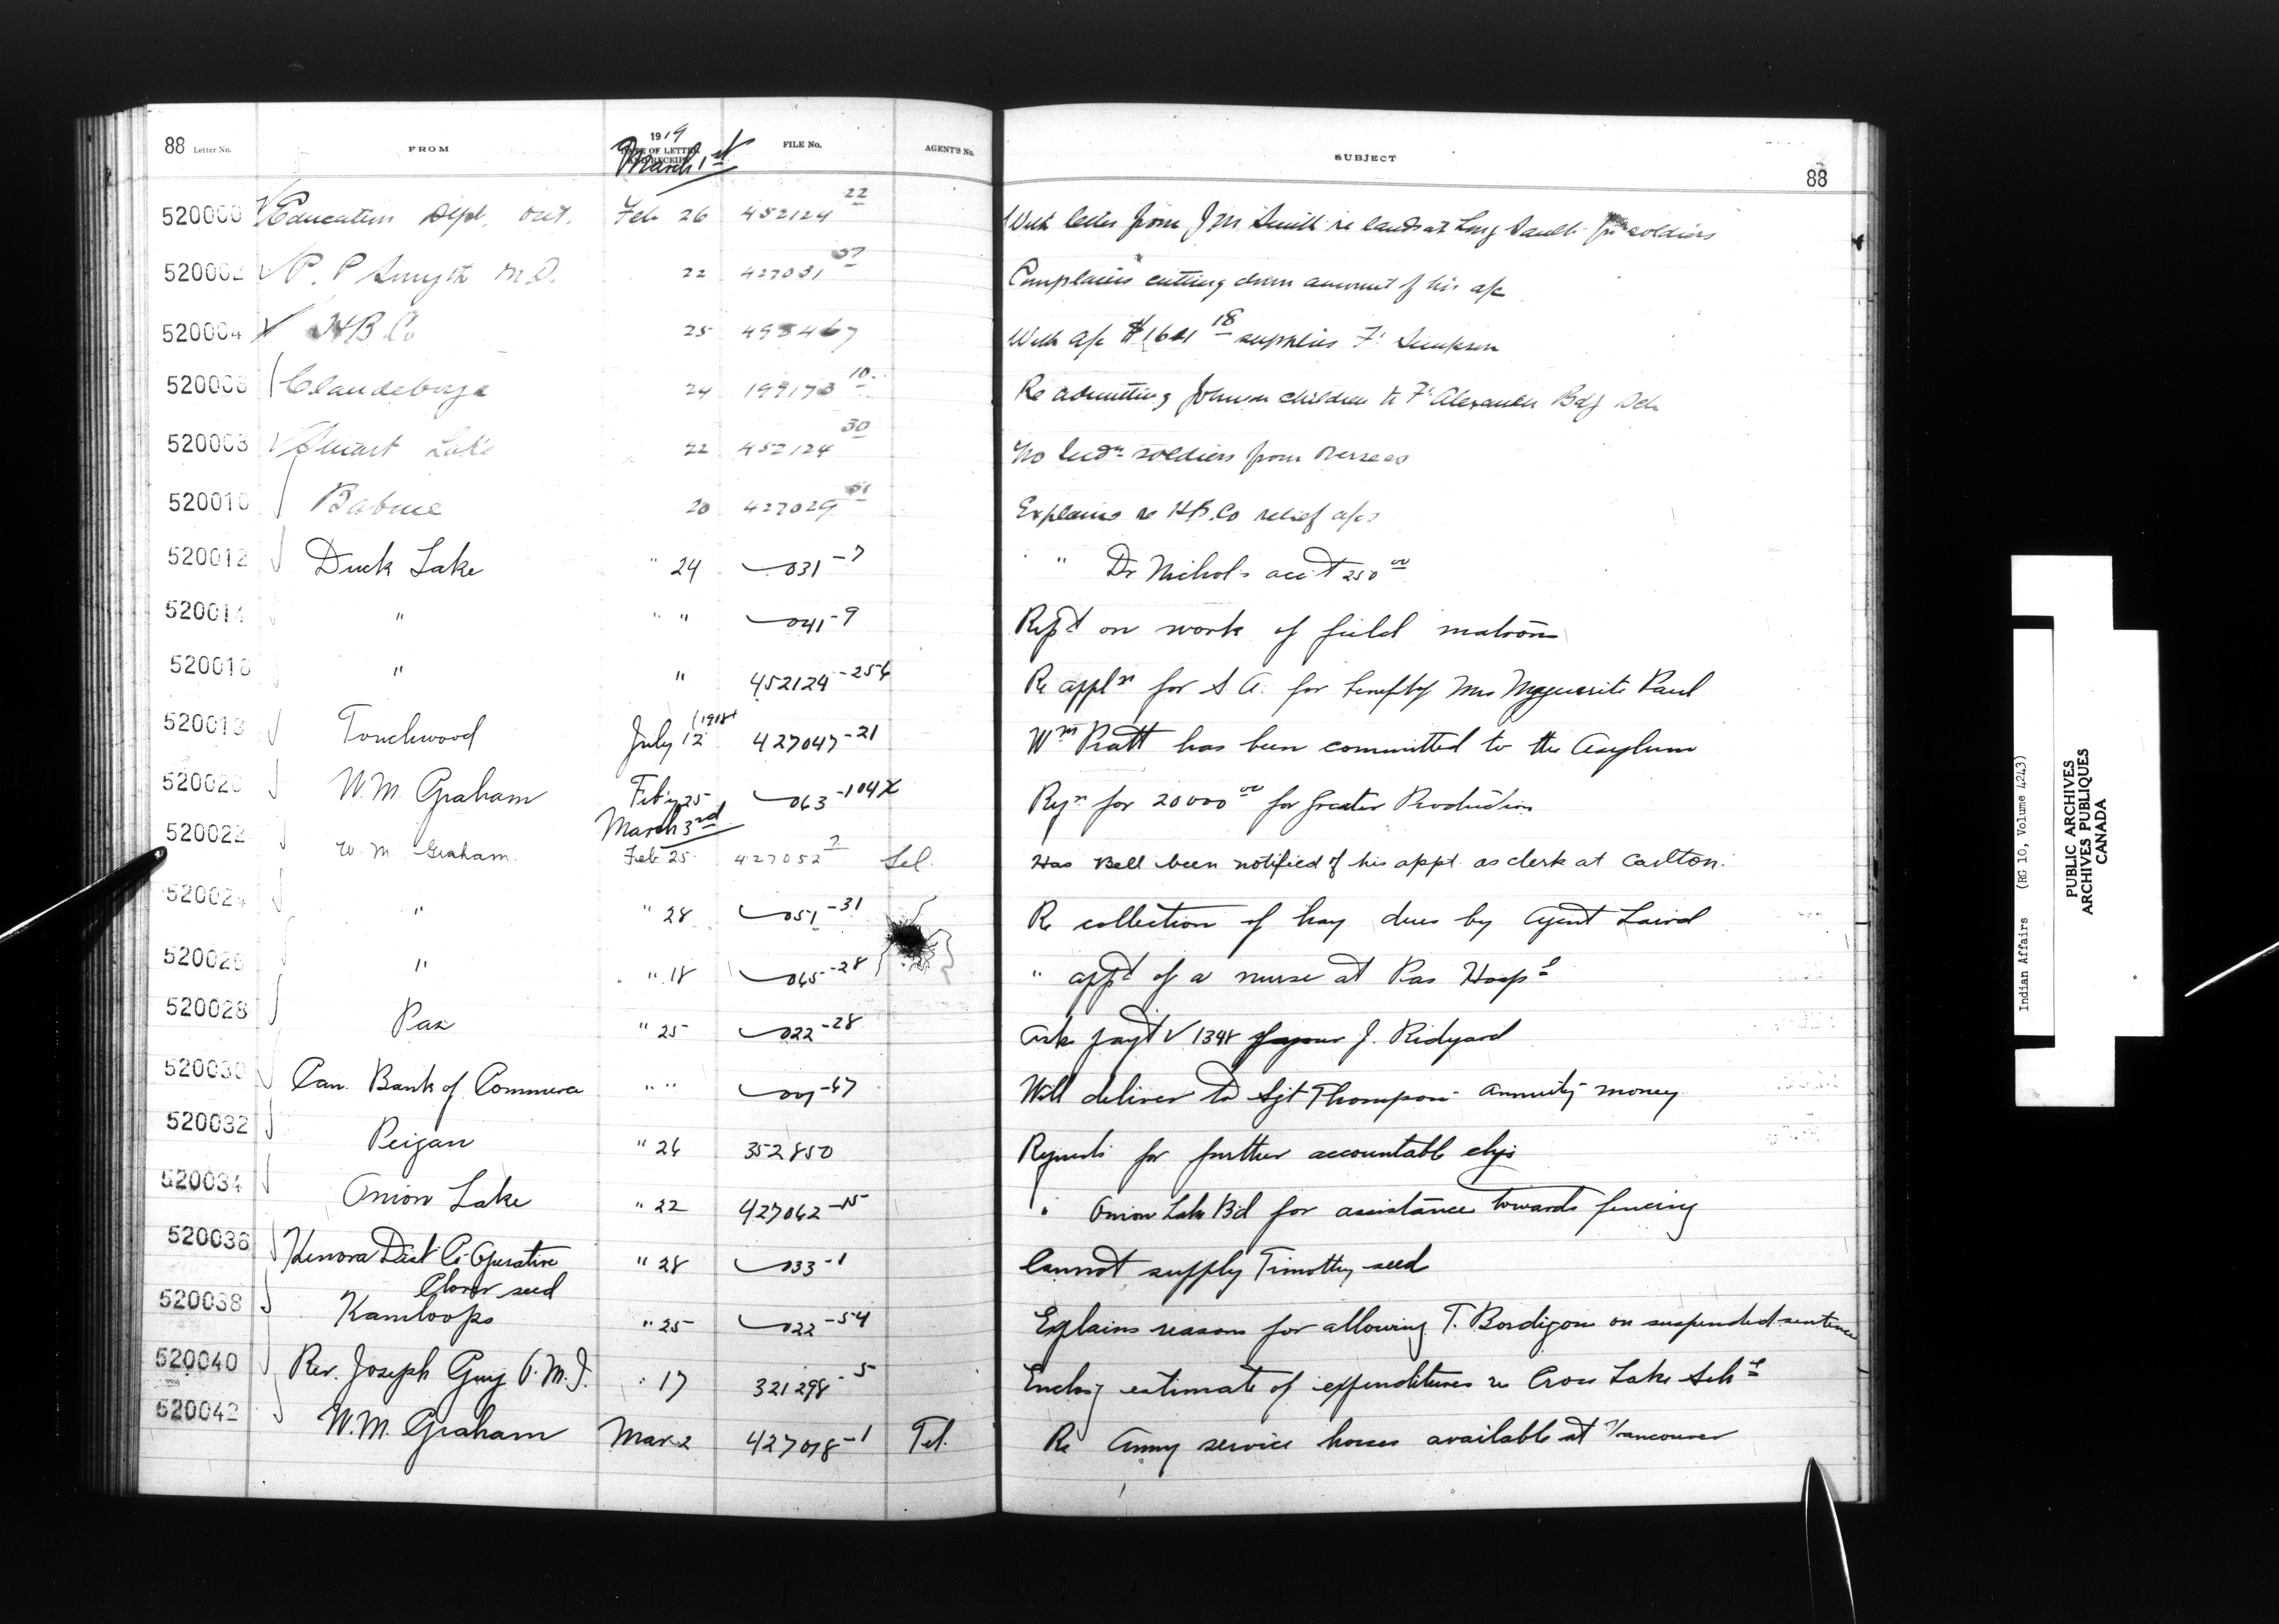 88 Letter No. FROM 1919 DATE OF LETTER AND RECEIPT FILE No. AGENT'S No. SUBJECT
March 1st 88
520000 Education Dept. Ont. Feb 26 452124 22 With letter from J M Smith re lands at Long Sault for soldiers
520002 P. P Smyth M.D. 22 427031 37 Complains cutting down amount of his a/c
520004 H B Co 25 495467 With a/c $1601 18 supplies Ft Simpson
520006 Clandeboye 24 199173 10 Re admitting Johnson children to Ft Alexander Bdg Sch
520008 Stuart Lake 22 452124 30 No Indn soldiers from overseas
520010 Babine 20 427029 Explains re H.B.Co relief a/cs
520012 Duck Lake " 24 031-7 " Dr Nichol's acct 250 00
520014 " " " 041-9 Rept on work of field matrons
520016 " " 452124-254 Re appln for S. A. for benefit of Mrs Marguerite Paul
520018 Touchwood July 12 (1918) 427047-21 Wm Pratt has been committed to the Asylum
520020 W. M. Graham Feby 25 063-104X Reqn for 20000 00 for Greater Production
March 3rd
520022 W. M. Graham. Feb 25. 427052 2 Tel. Has Bell been notified of his appt. as clerk at Carlton.
520024 " " 28 051-31 Re collection of hay dues by Agent Laird
520026 " " 18 065-28 " appt of a nurse at Pas Hospl
520028 Pas " 25 022-28 Asks payt V 1348 favour J. Ridyard
520030 Can. Bank of Commerce " " 007-67 Will deliver to Sgt Thompson annuity money
520032 Peigan " 26 352850 Requests for further accountable chqs
520034 Onion Lake " 22 427062-15 " Onion Lake Bd for assistance towards fencing
520036 Kenora Dist Co-Operative " 28 033-1 Cannot supply Timothy seed
Clover seed
520038 Kamloops " 25 022-54 Explains reasons for allowing T. Bordigon on suspended sentence
520040 Rev. Joseph Guy O.M.I. " 17 321298-5 Enclosg estimate of expenditures re Cross Lake Schl
520042 W. M. Graham Mar 2 427018-1 Tel. Re Army service horses available at Vancouver
Indian Affairs (RG 10, Volume 4243)
PUBLIC ARCHIVES
ARCHIVES PUBLIQUES
CANADA